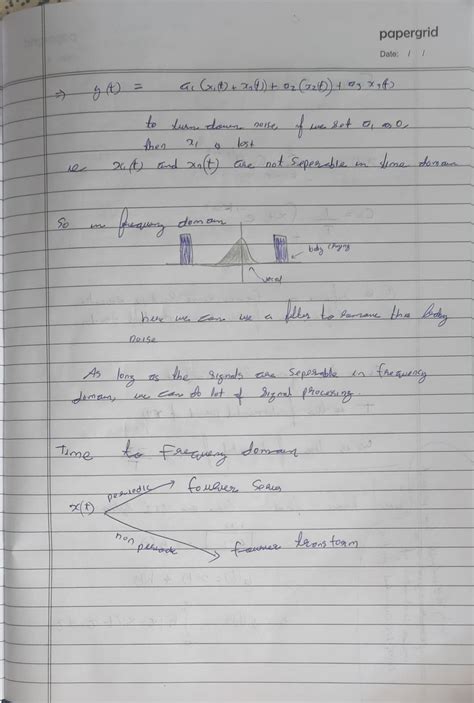 papergrid
Date: / /
⇒ y(t) = a₁(x₁(t) + xₙ(t)) + a₂(x₂(t)) + a₃ x₃(t)
to turn down noise, if we set a₁ = 0
then x₁ is lost
ie x₁(t) and xₙ(t) are not seperable in time domain
So in frequency domain
baby crying
vocal
here we can use a filter to remove the baby
noise
As long as the signals are seperable in frequency
domain, we can do lot of signal processing.
Time to Frequency domain
periodic
fourier series
x(t)
non
periodic
fourier transform